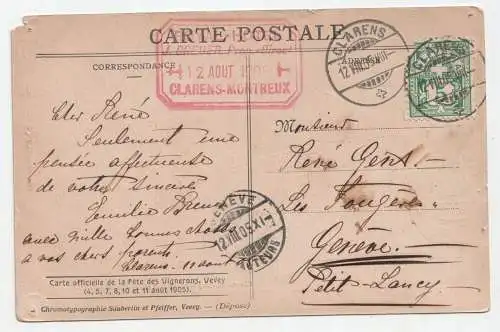 CARTE POSTALE
CORRESPONDANCE
12 AOUT 1905
CLARENS-MONTREUX
CLARENS
12.VIII.05.XII
CLARENS
12.VIII.05
Cher René
Seulement une
pensée affectueuse
de votre sincère
Emilie
avec mille bonnes choses
a vos chers parents.
Clarens. 11 août
GENÈVE
12.VIII.05.XI
FACTEURS
Monsieur
René Gens
Les Fougères
Genève.
Petit-Lancy
Carte officielle de la Fête des Vignerons, Vevey
(4, 5, 7, 8, 10 et 11 août 1905).
Chromotypographie Säuberlin et Pfeiffer, Vevey. — (Déposé)